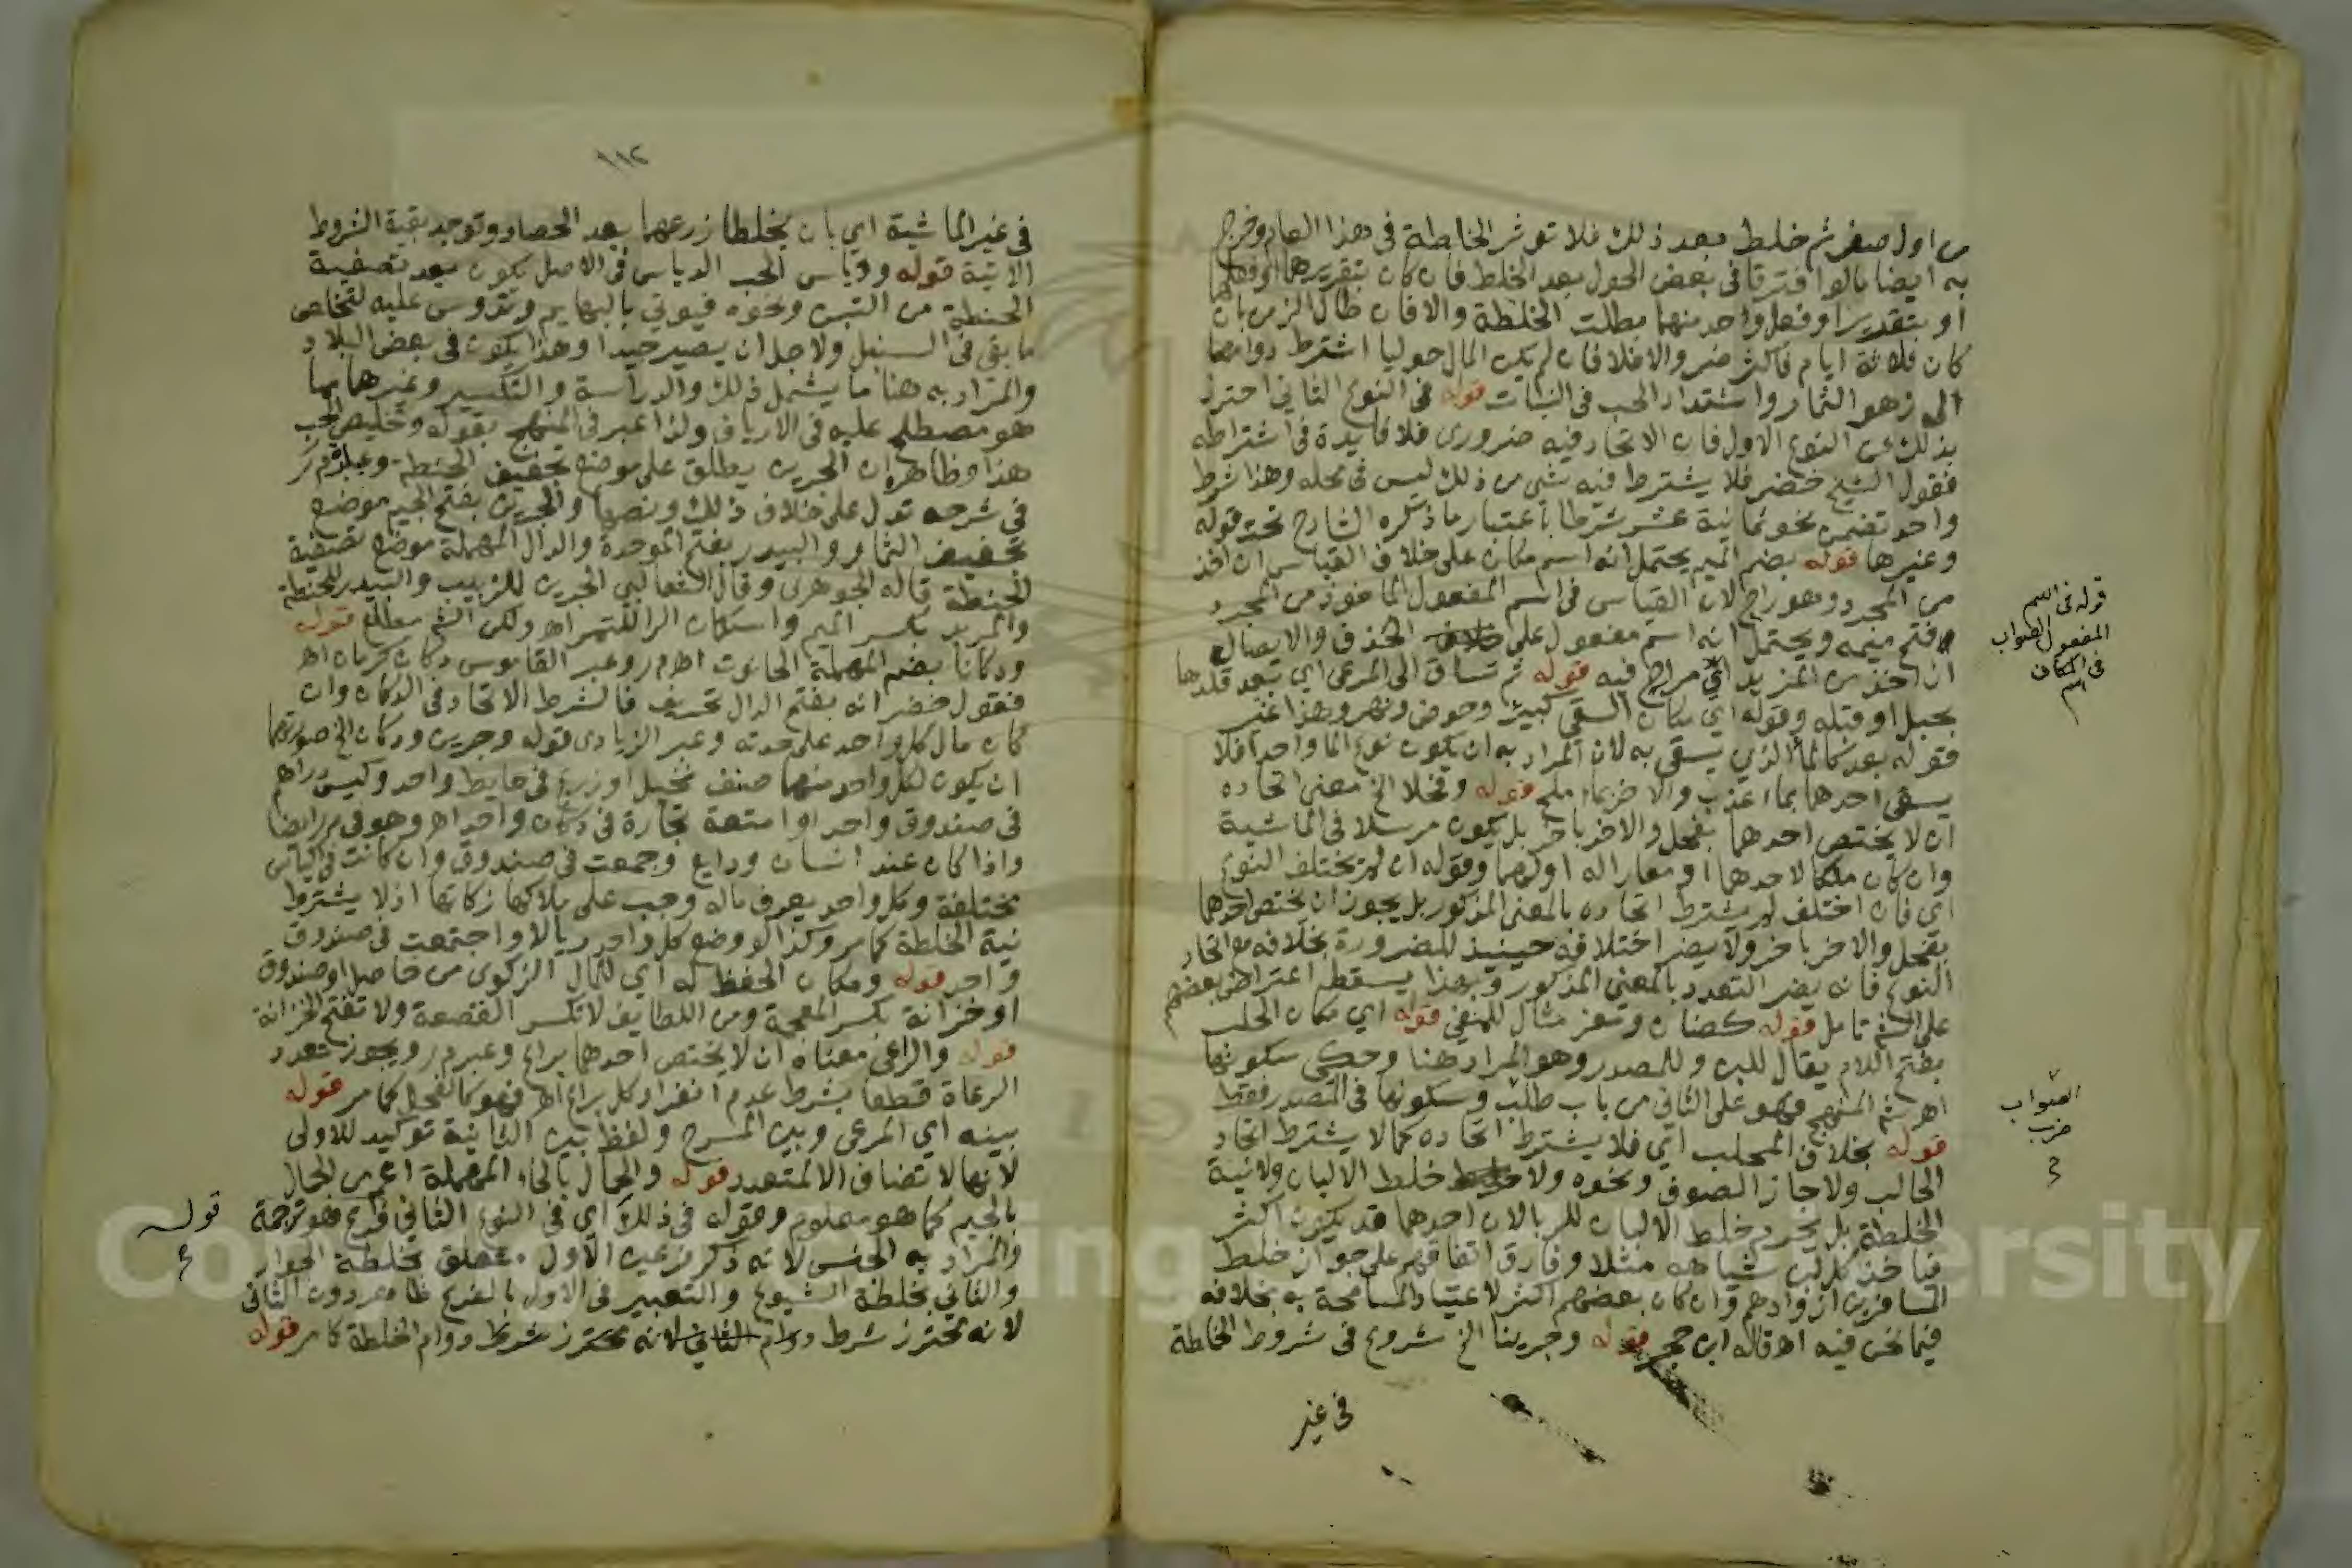 من اول صفر ثم خلط بعد ذلك فلا تؤثر الخلطة في هذا العام وخرج
به ايضا مالوا فترقا في بعض الحول بعد الخلط فان كان بتقريرهما او فعلهما
او بتقرير او فعل واحد منهما بطلت الخلطة والا فان طال الزمن بان
كان ثلاثة ايام فاكثر ضر والا فلا فان لم يكن المال حوليا اشترط دوامها
الى زهو الثمار واشتداد الحب في النبات قوله في النوع الثاني احترز
بذلك عن النوع الاول فان الاتحاد فيه ضروري فلا فايدة في اشتراطه
فقول الشيخ خضر فلا يشترط فيه شي من ذلك ليس في محله وهذا شرط
واحد تضمن نحو ثمانية عشر شرطا باعتبار ما ذكره الشارح تحت قوله
وغيرها قوله بضم الميم يحتمل انه اسم مكان على خلاف القياس ان اخذ
من المجرد وهو راح لان القياس في اسم المفعول الماخوذ من المجرد
فتح ميمه ويحتمل انه اسم مفعول على الحذف والايصال
ان اخذ من المزيد اي مراح فيه قوله ثم تساق الى المرعى اي بعد قلدها
بحبل او قتله وقوله اي مكان السقي كبير وحوض ونهر وهذا غير
فقوله بعد كالما الذي يسقى به لان المراد به ان يكون نوع الما واحدا فلا
يسقى احدهما بماء عذب والاخر بماء ملح قوله وفحلا الخ معنى اتحاده
ان لا يختص احدهما بفحل والاخر باخر بل يكون مرسلا في الماشية
وان كان ملكا لاحدهما او معارا له او لهما وقوله ان لم يختلف النوع
اي فان اختلف لم يشترط اتحاده بالمعنى المذكور بل يجوز ان يختص احدهما
بفحل والاخر باخر ولا يضر اختلافه حينيذ للضرورة بخلافه مع اتحاد
النوع فانه يضر التعدد بالمعنى المذكور وبهذا يسقط اعتراض بعضهم
على الشم تامل قوله كضان ومعز مثال للمنفي قوله اي مكان الحلب
بفتح اللام يقال للبن وللمصدر وهو المراد هنا وحكى سكونها
اهر شم المنهج فهو على الثاني من باب طلب وسكونها في المصدر فقط
قوله بخلاف المحلب اي فلا يشترط اتحاده كما لا يشترط اتحاد
الحالب ولا جاز الصوف ونحوه ولا خلط الالبان ولا نية
الخلطة بل يحرم خلط الالبان للربا لان احدهما قد يكون اكثر
فياخذ كل لبن شياهه مثلا وفارق اتفاقهم على جواز خلط
المسافرين ازوادهم وان كان بعضهم اكثر لاعتياد المسامحة به بخلافه
فيما نحن فيه اه قاله ابن حجر قوله وجرينا الخ شروع في شروط الخلطة
في غير
قوله في اسم
المفعول الصواب
في المكان
اسم
الصواب
ضرب
١١٢
في غير الماشية اي بان يخلطا زرعهما بعد الحصاد وتوجد بقية الشروط
الاتية قوله ودياس الحب الدياس في الاصل يكون بعد تصفية
الحنطة من التبن ونحوه فيوتي بالبهايم وتدوس عليه لتخلص
ما بقي في السنبل ولاجل ان يصير جيدا وهذا يكون في بعض البلاد
والمراد به هنا ما يشمل ذلك والدراسة والتكسير وغيرهما مما
هو مصطلح عليه في الارياف ولذا عبر في المنهج بقوله وتخليص الحب
هذا وظاهره ان الجرين يطلق على موضع تجفيف الحنطة وعبارة م ر
في شرحه تدل على خلاف ذلك ونصها والجرين بفتح الجيم موضع
تجفيف الثمار والبيدر بفتح الموحدة والدال المهملة موضع تصفية
الحنطة قاله الجوهري وقال الثعالبي الجرين للزبيب والبيدر للحنطة
والمربد بكسر الميم واسكان الرا للتمر اه ولكن الشم مطلع قوله
ودكانا بضم المهملة الحانوت اه م ر وعبر القاموس دكان كرمان اه
فقول خضر انه بفتح الدال تحريف فالشرط الاتحاد في الدكان وان
كان مال كل واحد على حدته وعبر الزيادي قوله وجرين ودكان الخ صورتها
ان يكون لكل واحد منهما صنف نخيل او زرع في حايط واحد وكيس دراهم
في صندوق واحد او امتعة تجارة في دكان واحد اه وهو في م ر ايضا
واذا كان عند انسان ودايع وجمعت في صندوق وان كانت في اكياس
مختلفة وكل واحد يعرف ماله وجب على ملاكها زكاتها اذ لا يشترط
نية الخلطة كما مر وكذا لو وضع كل واحد ريالا واجتمعت في صندوق
واحد قوله ومكان الحفظ له اي للمال الزكوي من حاصل او صندوق
او خزانة بكسر المعجمة ومن اللطايف لا تكسر القصعة ولا تفتح الخزانة
قوله والراعي معناه ان لا يختص احدهما براع وعبر م ر ويجوز تعدد
الرعاة قطعا بشرط عدم انفراد كل براع اه فهو كالفحل كما مر قوله
بينه اي المرعى وبين المسرح ولفظ بين الثانية توكيد للاولى
لانها لا تضاف الا لمتعدد قوله والحال بالحاء المهملة اعم من الحال
بالجيم كما هو معلوم وقوله في ذلك اي في النوع الثاني فرع هو ترجمة
والمراد به الجنس لانه ذكر فرعين الاول متعلق بخلطة الجوار
والثاني بخلطة الشيوع والتعبير في الاول بالفرع ظاهر دون الثاني
لانه محترز شرط دوام الثاني لانه محترز شرط دوام الخلطة كما مر قوله
قوله